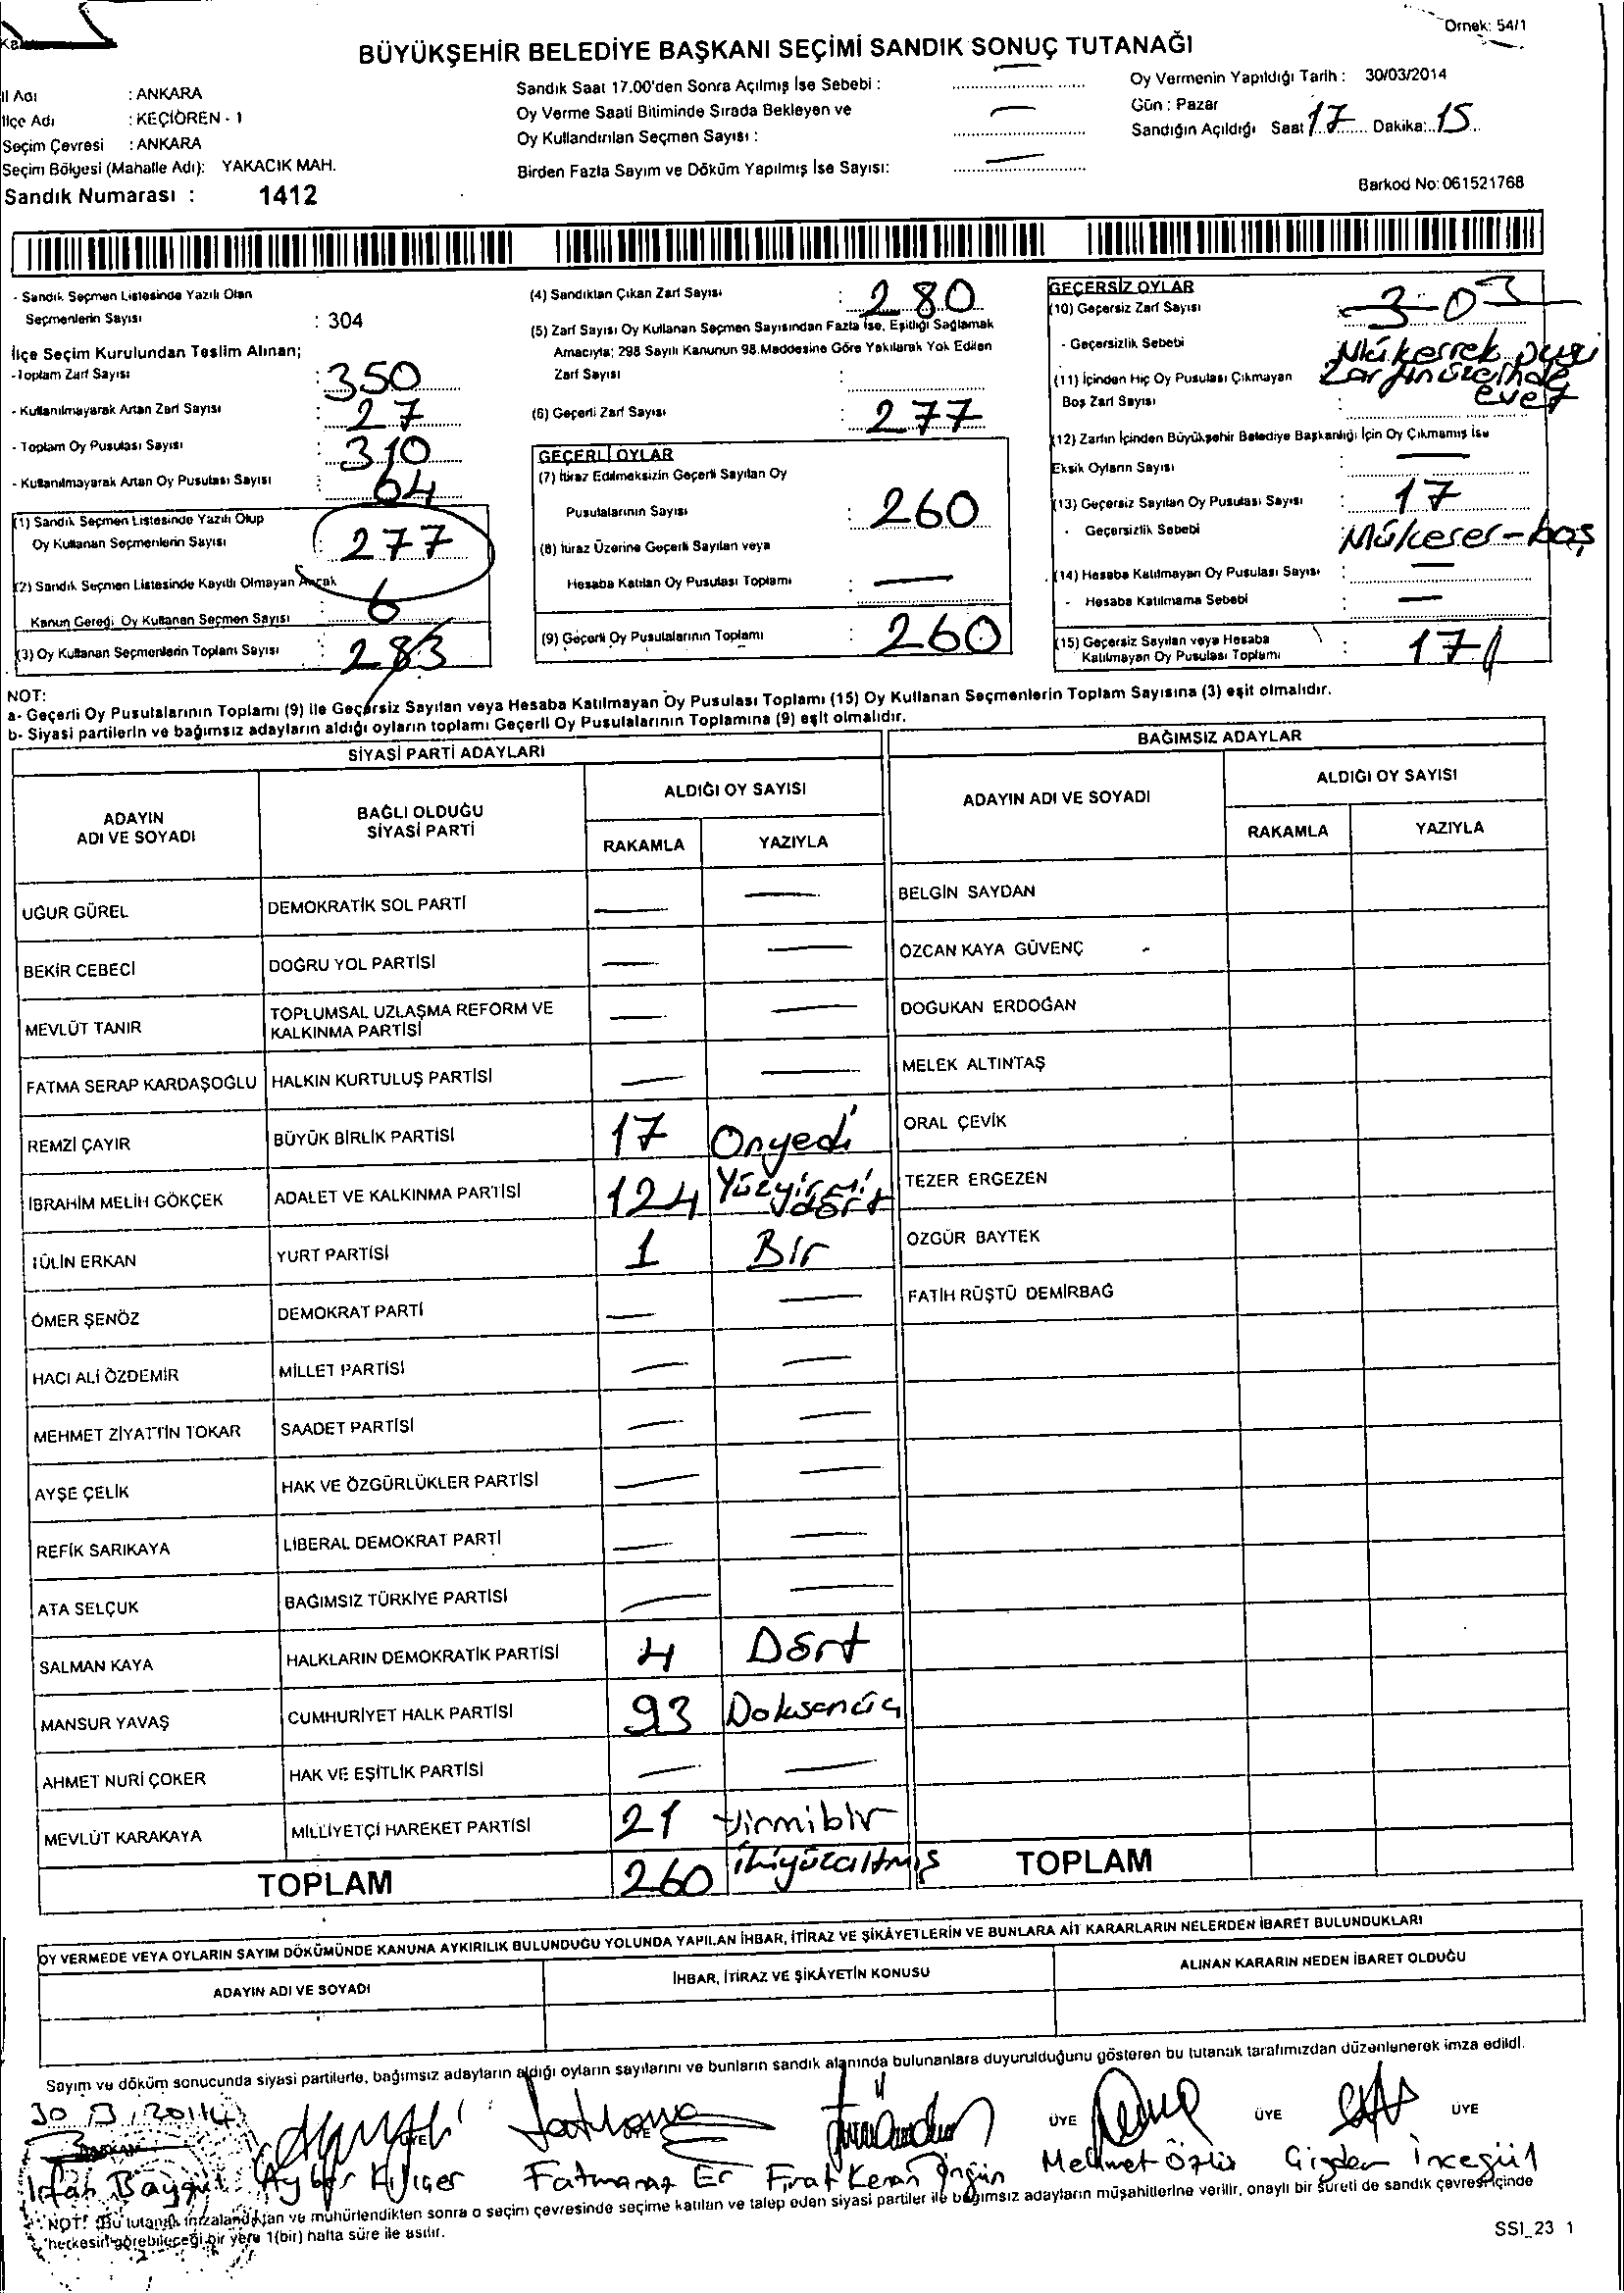 Örnek: 54/1
BÜYÜKŞEHİR BELEDİYE BAŞKANI SEÇİMİ SANDIK SONUÇ TUTANAĞI
İl Adı : ANKARA
İlçe Adı : KEÇİÖREN - 1
Seçim Çevresi : ANKARA
Seçim Bölgesi (Mahalle Adı): YAKACIK MAH.
Sandık Numarası : 1412
Sandık Saat 17.00'den Sonra Açılmış İse Sebebi : —
Oy Verme Saati Bitiminde Sırada Bekleyen ve
Oy Kullandırılan Seçmen Sayısı : —
Birden Fazla Sayım ve Döküm Yapılmış İse Sayısı: —
Oy Vermenin Yapıldığı Tarih : 30/03/2014
Gün : Pazar
Sandığın Açıldığı Saat 17 Dakika: 15
Barkod No: 061521768
- Sandık Seçmen Listesinde Yazılı Olan
Seçmenlerin Sayısı : 304
İlçe Seçim Kurulundan Teslim Alınan;
- Toplam Zarf Sayısı : 350
- Kullanılmayarak Artan Zarf Sayısı : 27
- Toplam Oy Pusulası Sayısı : 310
- Kullanılmayarak Artan Oy Pusulası Sayısı : 64
(1) Sandık Seçmen Listesinde Yazılı Olup
Oy Kullanan Seçmenlerin Sayısı : 277
(2) Sandık Seçmen Listesinde Kayıtlı Olmayan Ancak
Kanun Gereği Oy Kullanan Seçmen Sayısı : 6
(3) Oy Kullanan Seçmenlerin Toplam Sayısı : 283
(4) Sandıktan Çıkan Zarf Sayısı : 280
(5) Zarf Sayısı Oy Kullanan Seçmen Sayısından Fazla İse, Eşitliği Sağlamak
Amacıyla; 298 Sayılı Kanunun 98.Maddesine Göre Yakılarak Yok Edilen
Zarf Sayısı :
(6) Geçerli Zarf Sayısı : 277
GEÇERLİ OYLAR
(7) İtiraz Edilmeksizin Geçerli Sayılan Oy
Pusulalarının Sayısı : 260
(8) İtiraz Üzerine Geçerli Sayılan veya
Hesaba Katılan Oy Pusulası Toplamı : —
(9) Geçerli Oy Pusulalarının Toplamı : 260
GEÇERSİZ OYLAR
(10) Geçersiz Zarf Sayısı : 3-03
- Geçersizlik Sebebi Mükerrek oyu
zarfın üzerinde
evet
(11) İçinden Hiç Oy Pusulası Çıkmayan
Boş Zarf Sayısı :
(12) Zarfın İçinden Büyükşehir Belediye Başkanlığı İçin Oy Çıkmamış İse
Eksik Oyların Sayısı : —
(13) Geçersiz Sayılan Oy Pusulası Sayısı : 17
- Geçersizlik Sebebi Mükeser-boş
(14) Hesaba Katılmayan Oy Pusulası Sayısı : —
- Hesaba Katılmama Sebebi : —
(15) Geçersiz Sayılan veya Hesaba
Katılmayan Oy Pusulası Toplamı : 17
NOT:
a- Geçerli Oy Pusulalarının Toplamı (9) ile Geçersiz Sayılan veya Hesaba Katılmayan Oy Pusulası Toplamı (15) Oy Kullanan Seçmenlerin Toplam Sayısına (3) eşit olmalıdır.
b- Siyasi partilerin ve bağımsız adayların aldığı oyların toplamı Geçerli Oy Pusulalarının Toplamına (9) eşit olmalıdır.
SİYASİ PARTİ ADAYLARI
ADAYIN ADI VE SOYADI
BAĞLI OLDUĞU SİYASİ PARTİ
ALDIĞI OY SAYISI
RAKAMLA YAZIYLA
UĞUR GÜREL DEMOKRATİK SOL PARTİ — —
BEKİR CEBECİ DOĞRU YOL PARTİSİ — —
MEVLÜT TANIR TOPLUMSAL UZLAŞMA REFORM VE KALKINMA PARTİSİ — —
FATMA SERAP KARDAŞOĞLU HALKIN KURTULUŞ PARTİSİ — —
REMZİ ÇAYIR BÜYÜK BİRLİK PARTİSİ 17 Onyedi
İBRAHİM MELİH GÖKÇEK ADALET VE KALKINMA PARTİSİ 124 Yüzyirmi dört
TÜLİN ERKAN YURT PARTİSİ 1 Bir
ÖMER ŞENÖZ DEMOKRAT PARTİ — —
HACI ALİ ÖZDEMİR MİLLET PARTİSİ — —
MEHMET ZİYATTİN TOKAR SAADET PARTİSİ — —
AYŞE ÇELİK HAK VE ÖZGÜRLÜKLER PARTİSİ — —
REFİK SARIKAYA LİBERAL DEMOKRAT PARTİ — —
ATA SELÇUK BAĞIMSIZ TÜRKİYE PARTİSİ — —
SALMAN KAYA HALKLARIN DEMOKRATİK PARTİSİ 4 Dört
MANSUR YAVAŞ CUMHURİYET HALK PARTİSİ 93 Doksanüç
AHMET NURİ ÇOKER HAK VE EŞİTLİK PARTİSİ — —
MEVLÜT KARAKAYA MİLLİYETÇİ HAREKET PARTİSİ 21 Yirmibir
TOPLAM 260 ikiyüzaltmış
BAĞIMSIZ ADAYLAR
ADAYIN ADI VE SOYADI
ALDIĞI OY SAYISI
RAKAMLA YAZIYLA
BELGİN SAYDAN
ÖZCAN KAYA GÜVENÇ
DOĞUKAN ERDOĞAN
MELEK ALTINTAŞ
ORAL ÇEVİK
TEZER ERGEZEN
ÖZGÜR BAYTEK
FATİH RÜŞTÜ DEMİRBAĞ
TOPLAM
OY VERMEDE VEYA OYLARIN SAYIM DÖKÜMÜNDE KANUNA AYKIRILIK BULUNDUĞU YOLUNDA YAPILAN İHBAR, İTİRAZ VE ŞİKÂYETLERİN VE BUNLARA AİT KARARLARIN NELERDEN İBARET BULUNDUKLARI
ADAYIN ADI VE SOYADI
İHBAR, İTİRAZ VE ŞİKÂYETİN KONUSU
ALINAN KARARIN NEDEN İBARET OLDUĞU
Sayım ve döküm sonucunda siyasi partilerle, bağımsız adayların aldığı oyların sayılarını ve bunların sandık alanında bulunanlara duyurulduğunu gösteren bu tutanak tarafımızdan düzenlenerek imza edildi.
30.3.2014
BAŞKAN ÜYE ÜYE ÜYE
Fatmanaz Er Fırat Kenan Mehmet Çiğdem İncegül
NOT: Bu tutanak imzalandıktan ve mühürlendikten sonra o seçim çevresinde seçime katılan ve talep eden siyasi partiler ile bağımsız adayların müşahitlerine verilir, onaylı bir sureti de sandık çevresi içinde
herkesin görebileceği bir yere 1(bir) hafta süre ile asılır.
SSI_23 1